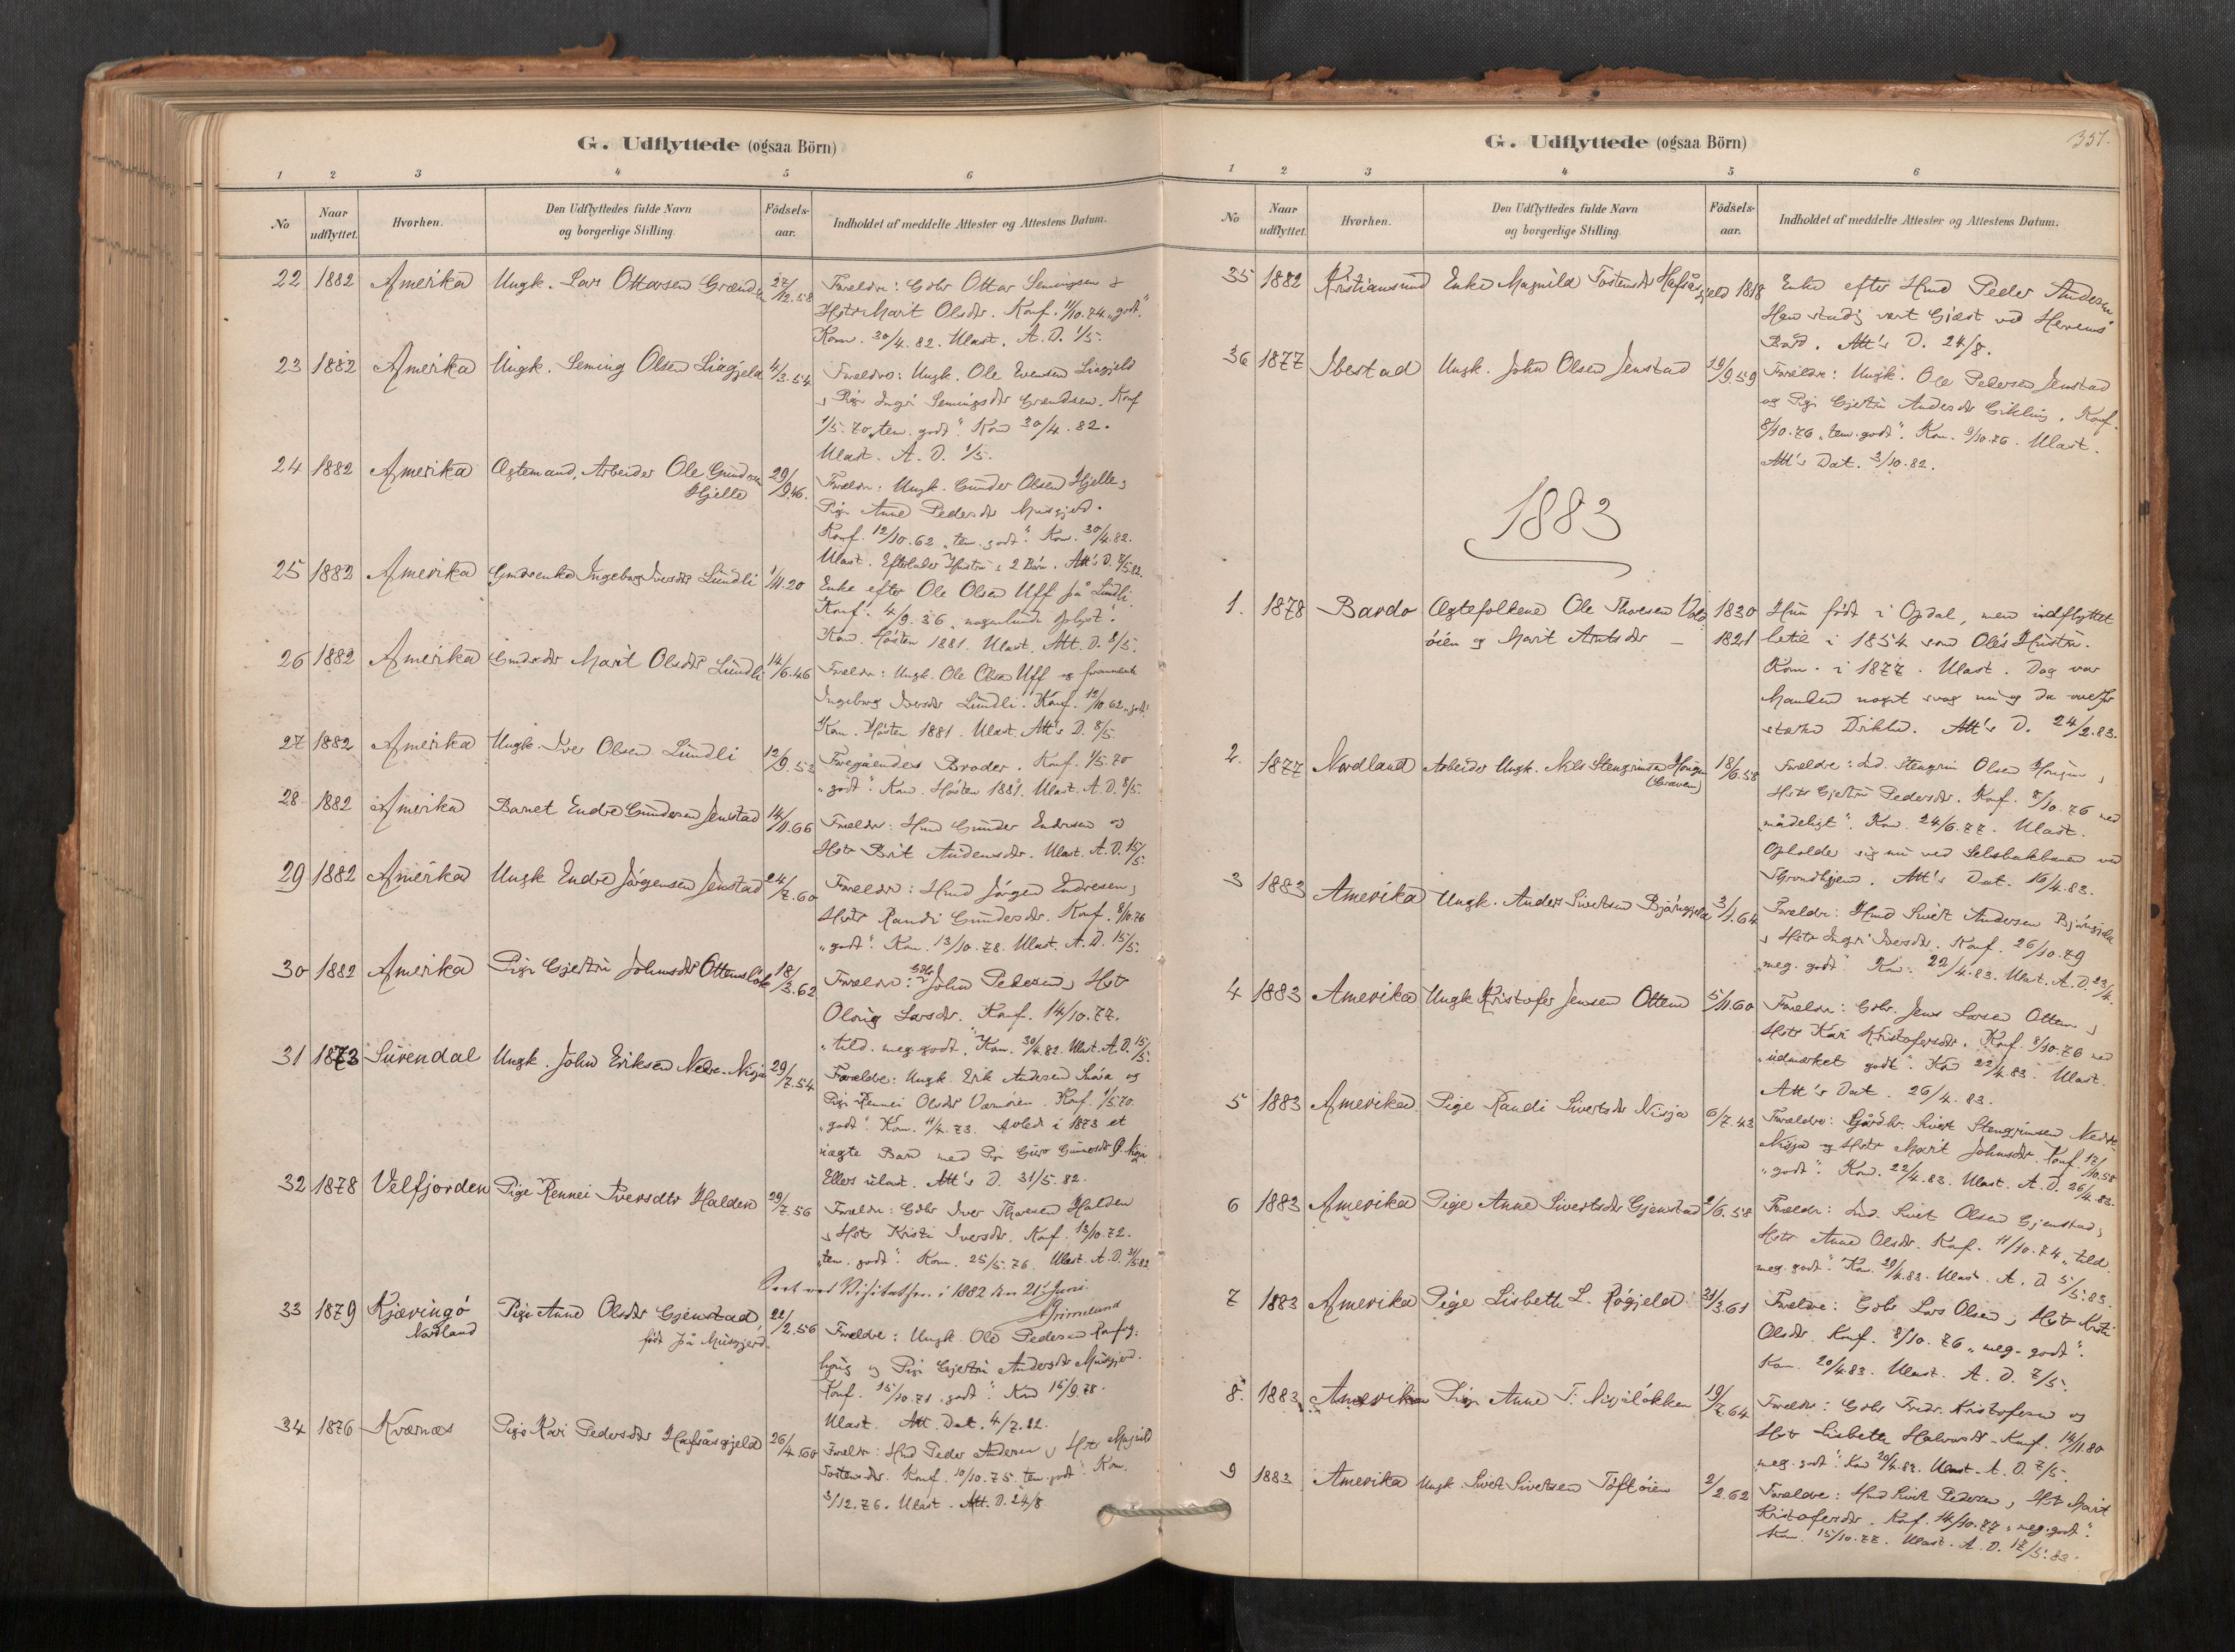 G. Udflyttede (ogsaa Börn)
1 2 3 4 5 6
No
Naar udflyttet.
Hvorhen.
Den Udflyttedes fulde Navn og borgerlige Stilling.
Födsels-aar.
Indholdet af meddelte Attester og Attestens Datum.
22 1882 Amerika Ungk. Lars Ottarsen Grænd 27/12.58
Forældre: Gdbr Ottar Semingsen &
Hstr Marit Olsdtr. Konf. 11/10.74 „godt“.
Kom. 30/4.82. Ulast. A.D. 1/5.
23 1882 Amerika Ungk. Seming Olsen Liagjeld 4/3.54
Forældre: Ungk. Ole Evensen Liagjeld
& Pige Ingri Semingsdtr Grændsen. Konf
1/5.70 „tem. godt“. Kom 30/4.82.
Ulast. A.D. 1/5.
24 1882 Amerika Ægtemand, Arbeider Ole Gundersen
Hjelle 29/9.46.
Forældre: Ungk. Gunder Olsen Hjelle &
Pige Anne Pedersdtr Musgjerd.
Konf. 12/10.62 „tem. godt“. Kom. 30/4.82.
Ulast. Efterlader Hustru & 2 Börn. Att's D. 7/5 82.
25 1882 Amerika Gmdsenke Ingeborg Iversdtr Lundli 1/11.20
Enke efter Ole Olsen Uff på Lundli.
Konf. 4/9.36 „nogenlunde oplyst“.
Kom. Hösten 1881. Ulast. Att. D. 8/5.
26 1882 Amerika Marit Olsdtr Lundli 14/6.46
Forældre: Ungk. Ole Olsen Uff og forannævnte
Ingeborg Iversdtr Lundli. Konf. 12/10.62 „godt“.
Kom. Hösten 1881. Ulast. Att's D. 8/5.
27 1882 Amerika Ungk. Iver Olsen Lundli 12/9.53
Foregåendes Broder. Konf. 1/5.70
„godt“. Kom. Hösten 1881. Ulast. A.D. 8/5.
28 1882 Amerika Barnet Endre Gundersen Jenstad 14/11.66
Forældre: Hmd Gunder Endresen og
Hstr Brit Andersdtr. Ulast. A.D. 15/5.
29 1882 Amerika Ungk Endre Jörgensen Jenstad 24/7.60
Forældre: Hmd Jörgen Endresen &
Hstr Randi Gundersdtr. Konf. 8/10.76
„godt“. Kom. 13/10.78. Ulast. A.D. 15/5.
30 1882 Amerika Pige Gjertru Johnsdtr Ottemslök 18/3.62
Forældre: Gdbr John Pedersen & Hstr
Olöug Larsdtr. Konf. 14/10.77.
„tild. meg. godt“. Kom. 30/4.82. Ulast. A.D. 15/5.
31 1873 Surendal Ungk. John Eriksen Nedre-Nisja 29/7.54
Forældre: Ungk. Erik Andersen Snöva og
Pige Rennei Olsdtr Værnöien. Konf. 1/5.70.
„godt“. Kom. 11/4.73. Avlede i 1873 et
uægte Barn med Pige Guro Gunnersdtr Ö. Nisja.
Ellers ulast. Att's D. 31/5.82.
32 1878 Velfjorden Pige Rennei Iversdtr Halden 29/7.56
Forældre: Gdbr Iver Thoresen Halden
& Hstr Kristi Iversdtr. Konf. 13/10.72.
„tem. godt“. Kom. 25/5.76. Ulast. A.D. 31/5 82
Seet ved Visitatsen i 1882 den 21' Juni.
33 1879 Kjæringö
Nordland
Pige Anne Olsdtr Gjenstad,
född på Musgjerd. 22/2.56
Forældre: Ungk. Ole Pedersen
& Pige Gjertru Andersdtr Musgjerd.
Konf. 15/10.71 „godt“. Kom 15/9.78.
Ulast. Att. Dat. 4/7.82.
34 1876 Kværnæs Pige Kari Pedersdtr Hafsåsgjeld 26/4.60
Forældre: Hmd Peder Andersen & Hstr Magnild
Tostensdtr. Konf. 10/10.75. tem. godt“. Kom.
3/12.76. Ulast. Att. D. 24/8
G. Udflyttede (ogsaa Börn)
351.
1 2 3 4 5 6
No
Naar udflyttet.
Hvorhen.
Den Udflyttedes fulde Navn og borgerlige Stilling.
Födsels-aar.
Indholdet af meddelte Attester og Attestens Datum.
35 1882 Kristiansund Enke Magnild Tostensdtr Hafsåsgjeld 1818
Enke efter Hmd Peder Andersen
Hun stadig vært Gjæst ved Herrens
Bord. Att's D. 24/8.
36 1877 Ibestad Ungk. John Olsen Jenstad 19/9.59
Forældre: Ungk. Ole Pedersen Jenstad
og Pige Gjertru Andersdtr Gikling. Konf.
8/10.76 „tem. godt“. Kom. 9/10.76. Ulast.
Att's Dat. 3/10.82.
1883
1. 1878 Bardo Ægtefolkene Ole Thoresen Vold- 1830
öien og Marit Arntsdtr — 1821
Hun född i Opdal, men indflyttet
hertil i 1854 som Ole's Hustru.
Kom. i 1877. Ulast. Dog var
Manden noget svag nu og da overfor
stærke Drikke. Att's D. 24/2.83.
2. 1877 Nordland Arbeider Ungk. Nils Stengrimsen Hougen
(Graven) 18/6.58
Forældre: Ind. Stengrim Olsen Hougen &
Hstr Gjertru Pedersdtr. Konf. 8/10.76 med
„mådeligt“. Kom. 24/6.77. Ulast.
Opholder sig nu ved Selsbakbanen ved
Throndhjem. Att's Dat. 16/4.83.
3 1883 Amerika Ungk. Anders Sivertsen Björingjeld 3/1.64
Forældre: Hmd Sivert Andersen Björingjeld
& Hstr Ingri Iversdtr. Konf. 26/10.79
„meg. godt“ Kom: 22/4.83. Ulast. A.D. 23/4.
4 1883 Amerika Ungk Kristofer Jensen Ottem 5/11.60
Forældre: Gdbr. Jens Larsen Ottem &
Hstr Kari Kristofersdtr. Konf. 8/10.76 med
„udmærket godt“. Kom 22/4.83. Ulast.
Att's Dat. 26/4.83.
5 1883 Amerika. Pige Randi Sivertsdtr Nisja 6/7.43
Forældre: Gårdbr. Sivert Stengrimsen Nedre
Nisja og Hstr Marit Johnsdtr. Konf. 17/10.58
„godt“. Kom. 22/4.83. Ulast. A.D. 26/4.83.
6 1883 Amerika Pige Anne Sivertsdtr Gjenstad 2/6.58
Forældre: Ind. Sivert Olsen Gjenstad &
Hstr Anne Olsdtr. Konf. 11/10.74 „tild.
meg. godt“. Kom. 29/4.83. Ulast. A.D 5/5.83.
7 1883 Amerika Pige Lisbeth L. Rögjeld 31/3.61
Forældre: Gdbr Lars Olsen & Hstr Kristi
Olsdtr. Konf. 8/10.76 „meg. godt“.
Kom. 20/4.83. Ulast. A.D. 7/5.
8. 1883 Amerika Pige Anne F. Nisjalökken 19/7.64
Forældre: Gdbr Fredr. Kristofersen og
Hstr Lisbeth Halvorsdtr. Konf. 14/11.80
„meg. godt“. Kom 20/4.83. Ulast. A.D. 7/5.
9 1883 Amerika Ungk. Sivert Sivertsen Töftöien 2/2.62
Forældre: Hmd Sivert Pedersen & Hstr Marit
Kristofersdtr. Konf. 14/10.77 „meg. godt“.
Kom. 15/10.77. Ulast. A.D. 17/5.83.